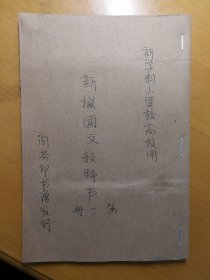 新学制小学校高级用
新撰国文教科书
第六册
商务印书馆发行